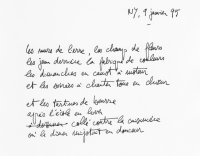 NY, 9 janvier 95
les murs de terre, les champs de fleurs
les jeux derrière la fabrique de couleurs
les dimanches en canot à moteur
et les soirées à chanter tous en chœur
et les tartines de beurre
après l'école en hiver
à collé contre la cuisinière
où le dîner mijotait en douceur